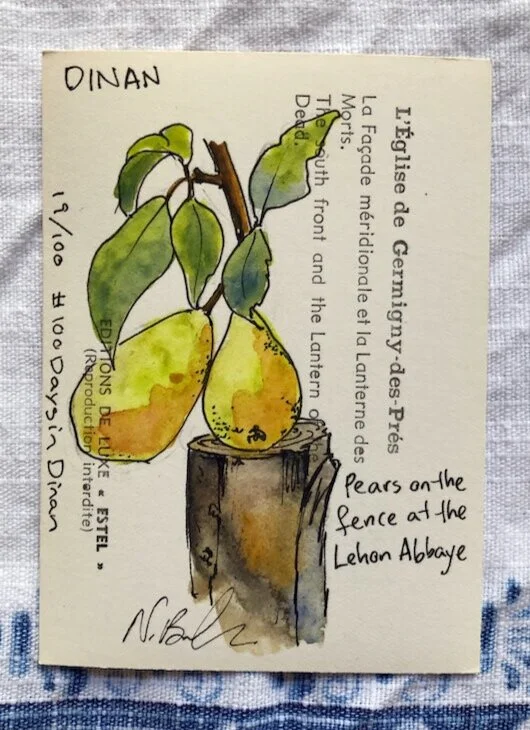 DINAN
L'Église de Germigny-des-Prés
La Façade méridionale et la Lanterne des
Morts.
The South front and the Lantern of the
Dead.
EDITIONS DE LUXE « ESTEL »
(Reproduction interdite)
19/100 #100DaysinDinan
Pears on the
fence at the
Lehon Abbaye